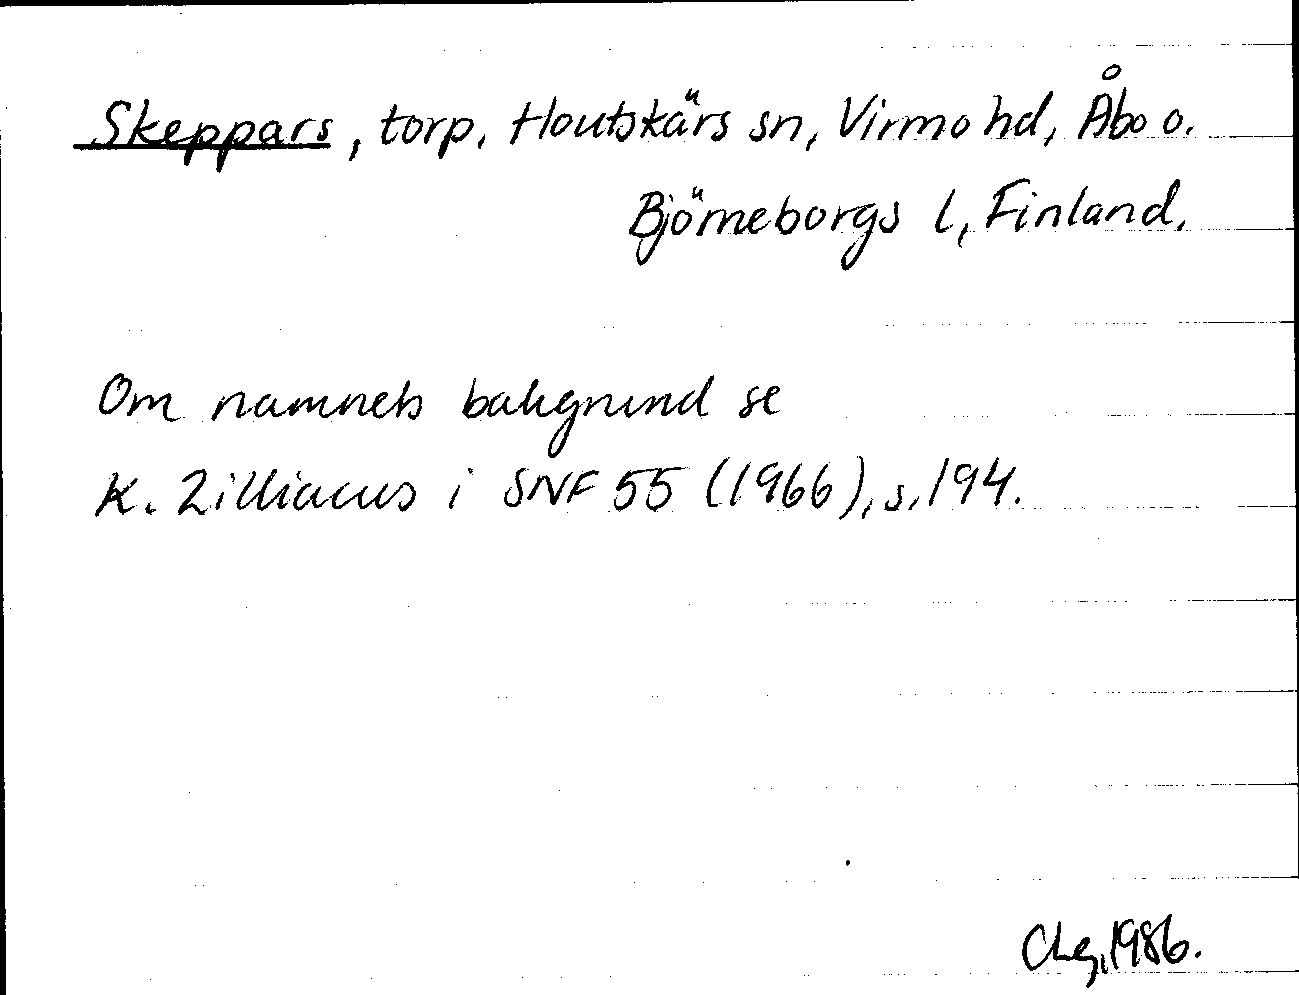 Skeppars, torp, Houtskärs sn, Virmo hd, Åbo o.
Björneborgs l, Finland.
Om namnets bakgrund se
K. Zilliacus i SNF 55 (1966), s. 194.
1986.